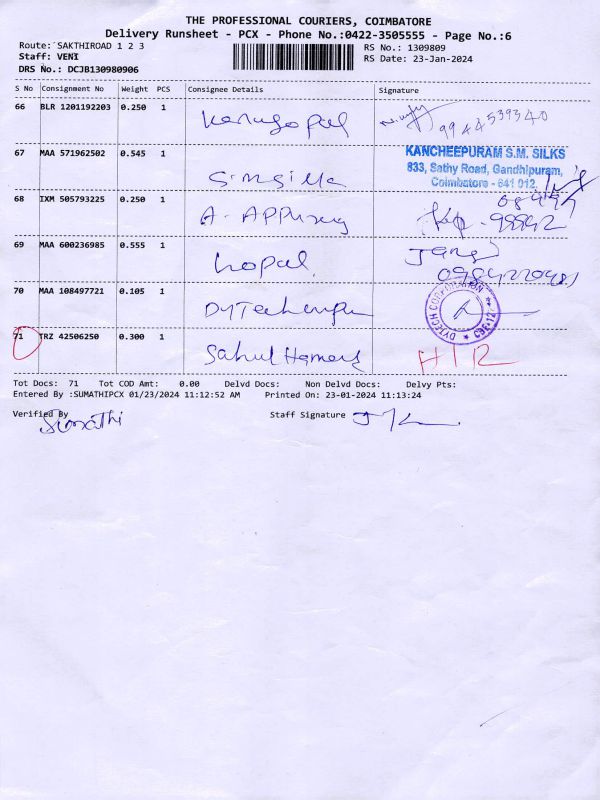 THE PROFESSIONAL COURIERS, COIMBATORE
Delivery Runsheet - PCX - Phone No.:0422-3505555 - Page No.:6
Route: SAKTHIROAD 1 2 3 RS No.: 1309809
Staff: VENI RS Date: 23-Jan-2024
DRS No.: DCJB130980906
S No Consignment No Weight PCS Consignee Details Signature
66 BLR 1201192203 0.250 1 Venugopal 9944539340
67 MAA 571962502 0.545 1 KANCHEEPURAM S.M. SILKS
833, Sathy Road, Gandhipuram,
Coimbatore - 641 012.
S.M Silks
68 IXM 505793225 0.250 1
69 MAA 600236985 0.555 1 Gopal
70 MAA 108497721 0.105 1 DYTECH CORPORATION CBE-12
71 TRZ 42506250 0.300 1 Sahul Hameed
Tot Docs: 71 Tot COD Amt: 0.00 Delvd Docs: Non Delvd Docs: Delvy Pts:
Entered By :SUMATHIPCX 01/23/2024 11:12:52 AM Printed On: 23-01-2024 11:13:24
Verified By Staff Signature
Sumathi